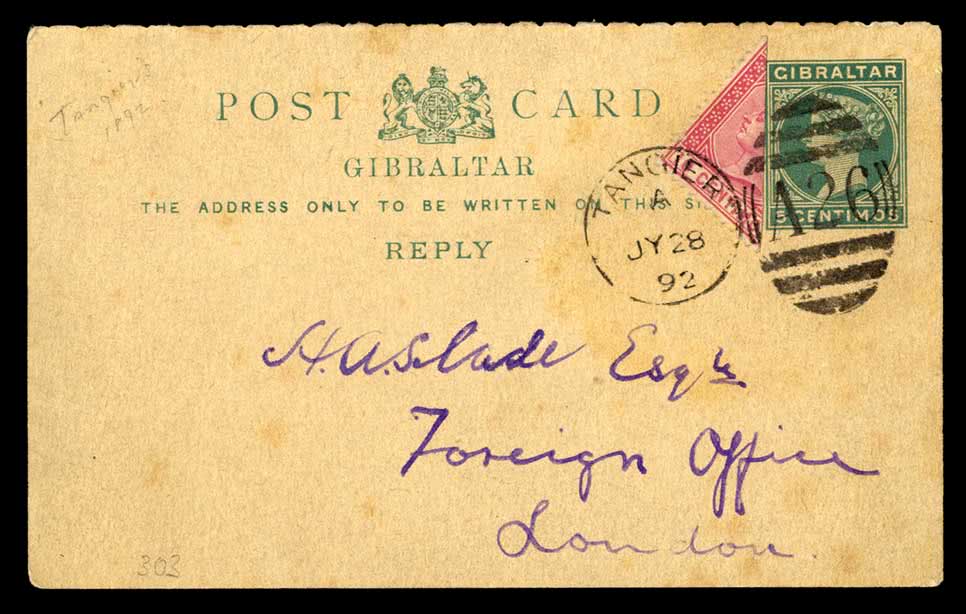 Tangiers
1892
POST CARD
GIBRALTAR
THE ADDRESS ONLY TO BE WRITTEN ON THIS
REPLY
GIBRALTAR
5 CENTIMOS
TANGIER
A
JY 28
92
A26
H.A. Slade Esqre
Foreign Office
London.
303